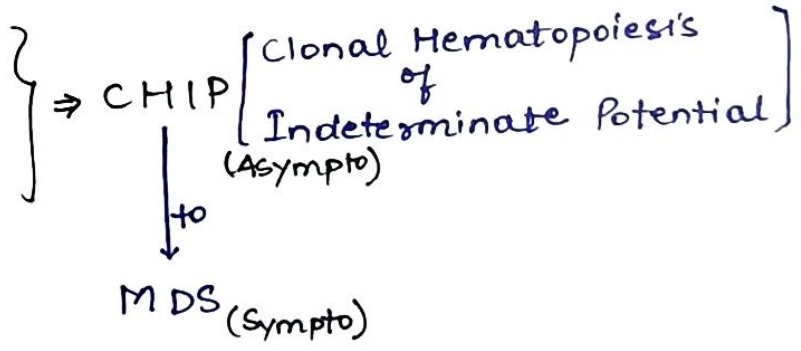 } ⇒ CHIP [Clonal Hematopoiesis
of
Indeterminate Potential]
(Asympto)
↓ to
MDS (Sympto)